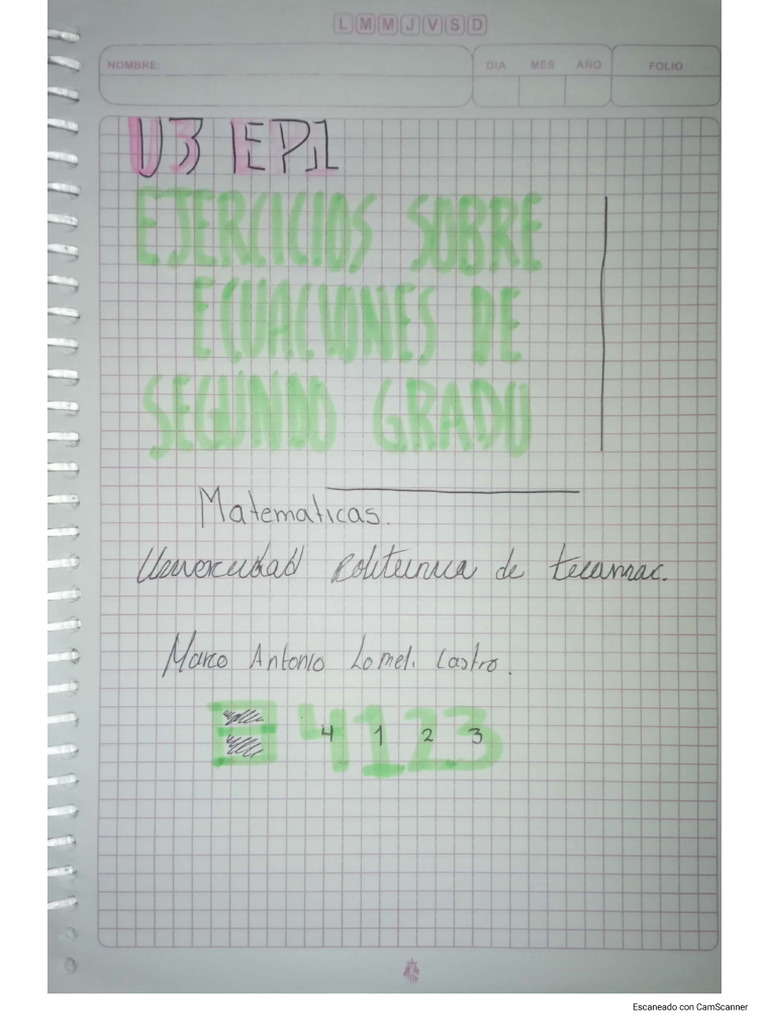 L M M J V S D
NOMBRE:
DIA MES AÑO FOLIO
U3 EP1
EJERCICIOS SOBRE
ECUACIONES DE
SEGUNDO GRADO
Matematicas.
Universidad Politecnica de tecamac.
Marco Antonio Lomeli Castro.
4 1 2 3
Escaneado con CamScanner